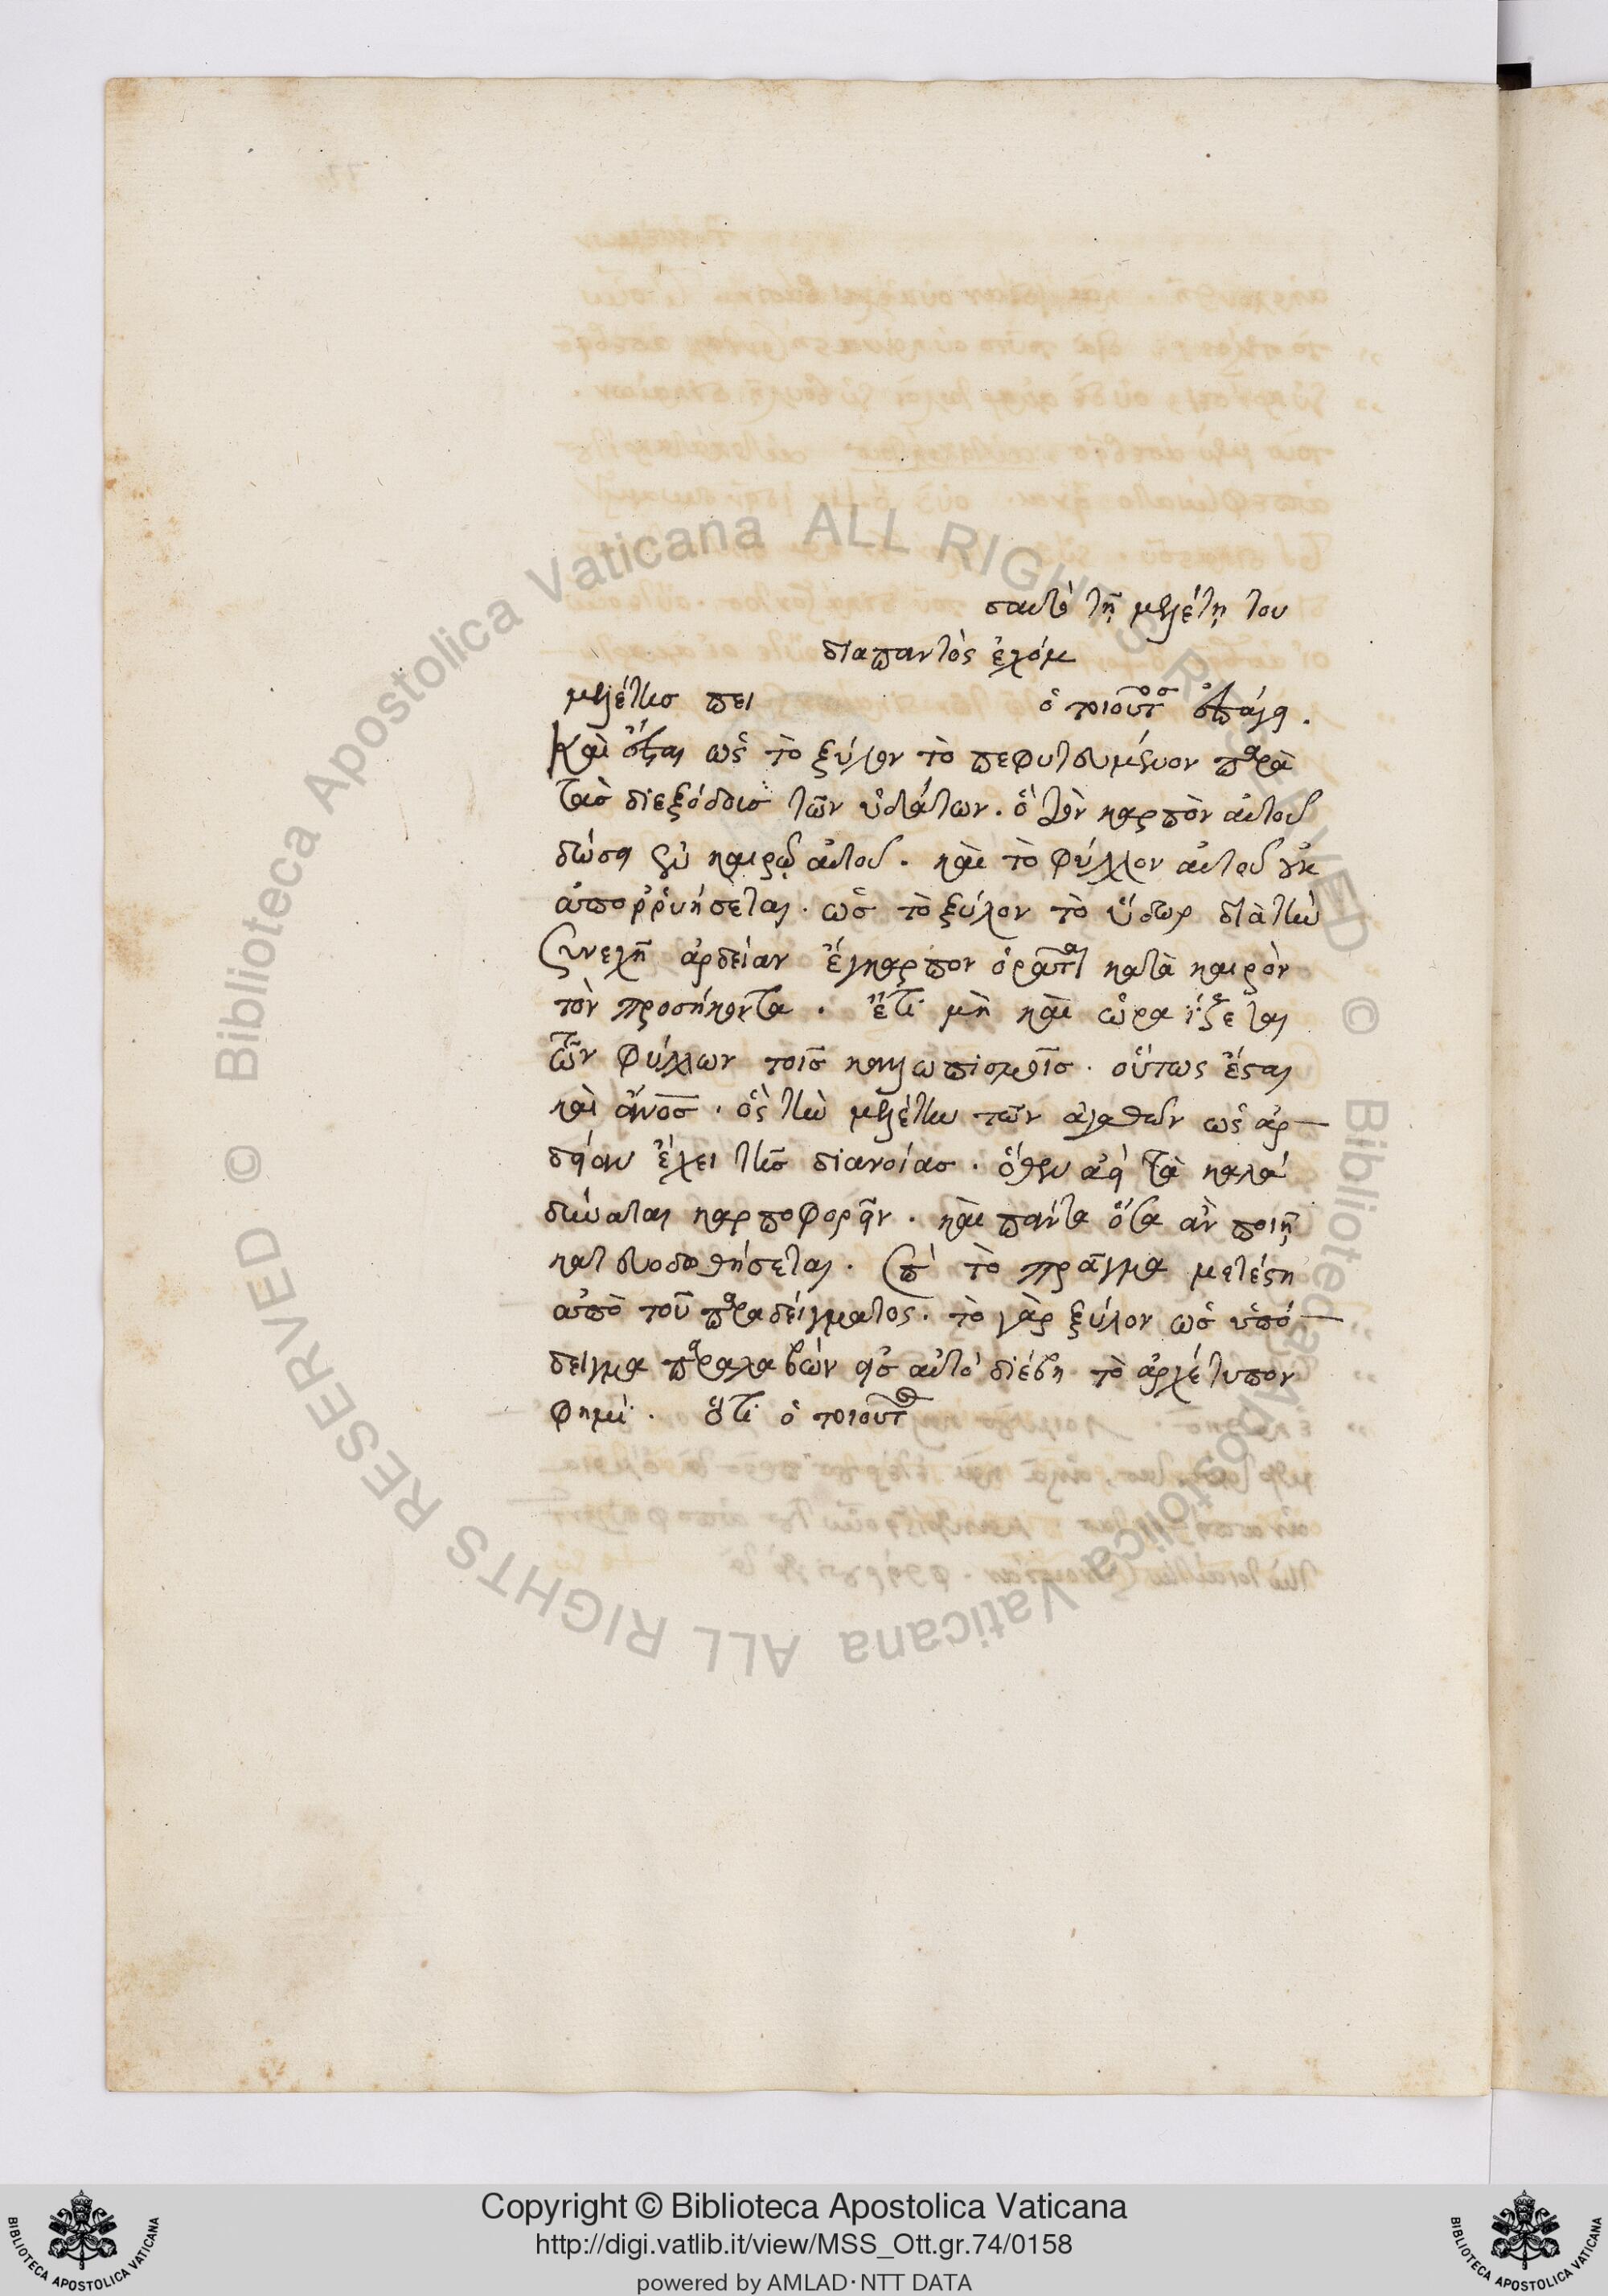 σαυτὸ τῆ μελέτῃ του
διαπαντὸς ἐχόμ
μελέτης πει ὁ τοιοῦτος ὑπάγει.
Καὶ ἔσται ὡς τὸ ξύλον τὸ πεφυτευμένον παρὰ
τὰς διεξόδους τῶν ὑδάτων. ὃ τὸν καρπὸν αὐτοῦ
δώσει ἐν καιρῷ αὐτοῦ. καὶ τὸ φύλλον αὐτοῦ οὐκ
ἀπορρυήσεται. ὡς τὸ ξύλον τὸ ὕδωρ διὰ τὴν
συνεχῆ ἀρδείαν ἔγκαρπον ὁρᾶται κατὰ καιρὸν
τὸν προσήκοντα. ἔτι μὴν καὶ ὥρα
τῶν φύλλων τοῖς καλλωπισμοῖς. οὕτως ἔσται
καὶ ἄνος. ὃς τὴν μελέτην τῶν ἀγαθῶν ὡς ἀρ
δείαν ἔχει τῆς διανοίας. ὅθεν ἀεὶ τὰ καλὰ
δύναται καρποφορεῖν. καὶ πάντα ὅσα ἂν ποιῇ
κατευοδωθήσεται. ἐπὶ τὸ πρᾶγμα μετέστη
ἀπὸ τοῦ παραδείγματος. τὸ γὰρ ξύλον ὡς ὑπό
δειγμα παραλαβὼν εἰς αὐτὸ διέβη τὸ ἀρχέτυπον
φημί. ὅτι ὁ τοιοῦτος
Copyright © Biblioteca Apostolica Vaticana
http://digi.vatlib.it/view/MSS_Ott.gr.74/0158
powered by AMLAD·NTT DATA
BIBLIOTECA APOSTOLICA VATICANA
BIBLIOTECA APOSTOLICA VATICANA
© Biblioteca Apostolica Vaticana ALL RIGHTS RESERVED
© Biblioteca Apostolica Vaticana ALL RIGHTS RESERVED